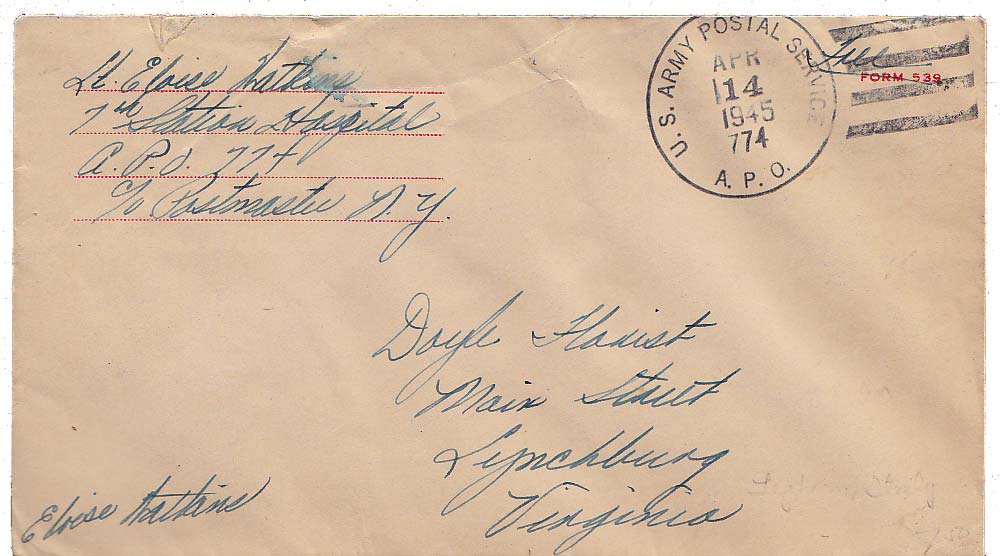 Lt. Eloise Watkins
7th Station Hospital
A.P.O. 774
c/o Postmaster N.Y.
U.S. ARMY POSTAL SERVICE
APR
14
1945
774
A. P. O.
Free
FORM 539
Doyle Florist
Main Street
Lynchburg
Virginia
Eloise Watkins